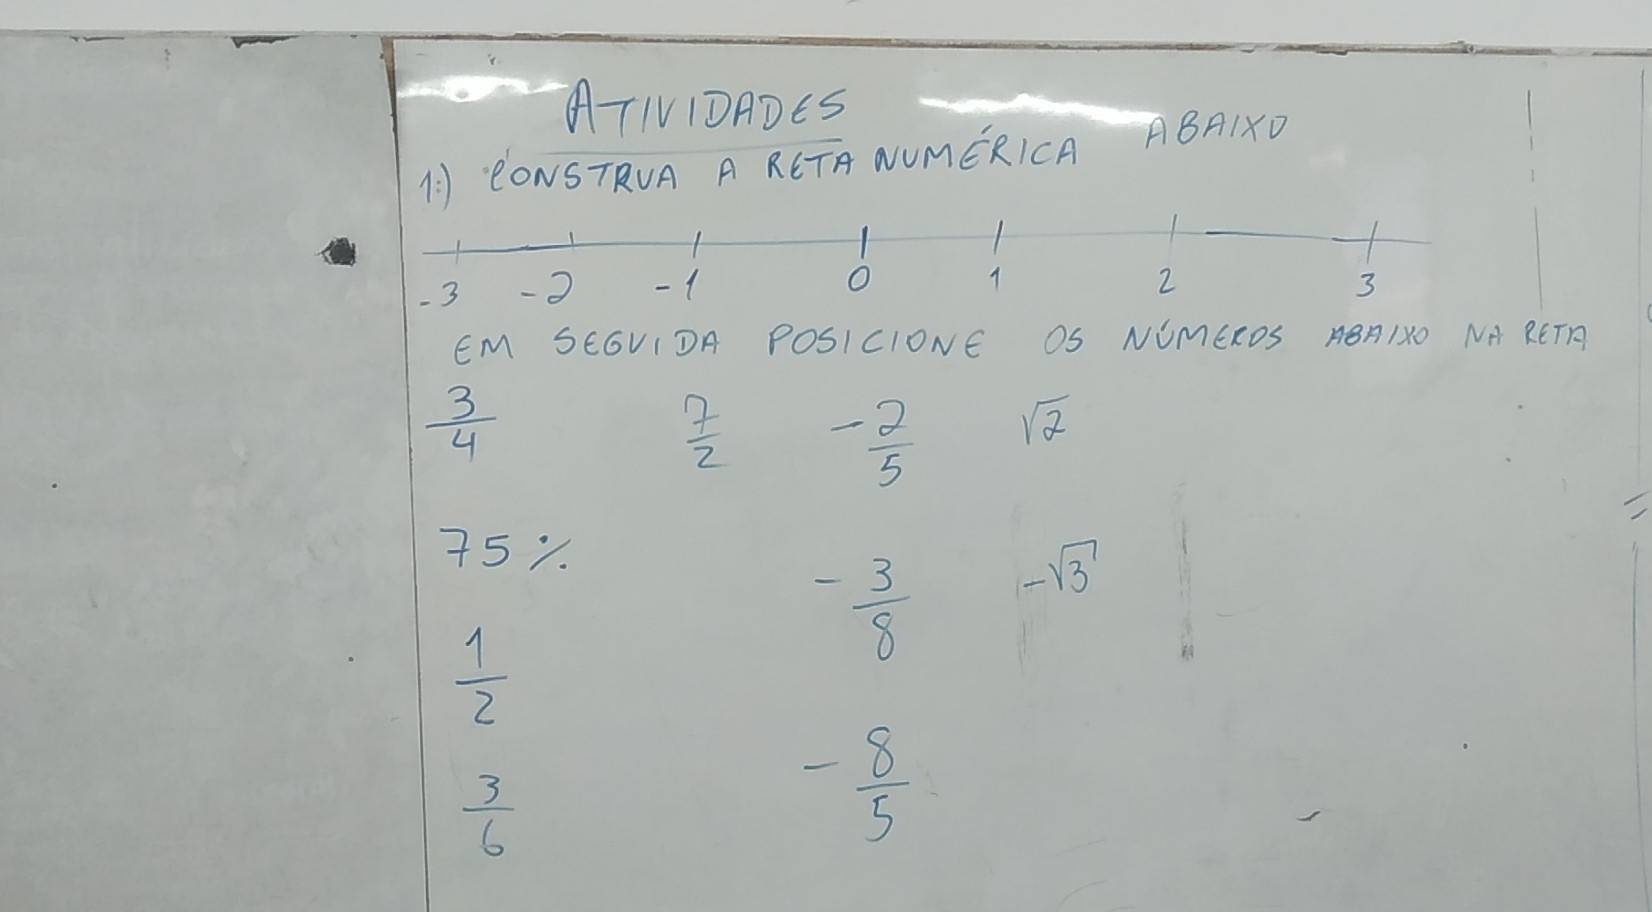 ATIVIDADES
1:) CONSTRUA A RETA NUMÉRICA ABAIXO
-3 -2 -1 0 1 2 3
EM SEGUIDA POSICIONE OS NÚMEROS ABAIXO NA RETA
3/4 7/2 -2/5 √2
75% -3/8 -√3
1/2
3/6 -8/5